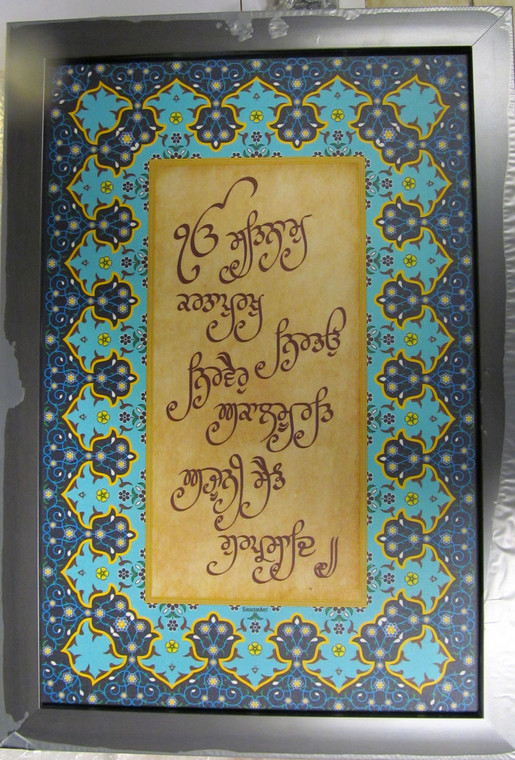 ੴ ਸਤਿਨਾਮੁ
ਕਰਤਾਪੁਰਖੁ
ਨਿਰਭਉ
ਨਿਰਵੈਰੁ
ਅਕਾਲਮੂਰਤਿ
ਅਜੂਨੀ ਸੈਭੰ
ਗੁਰਪ੍ਰਸਾਦਿ ॥